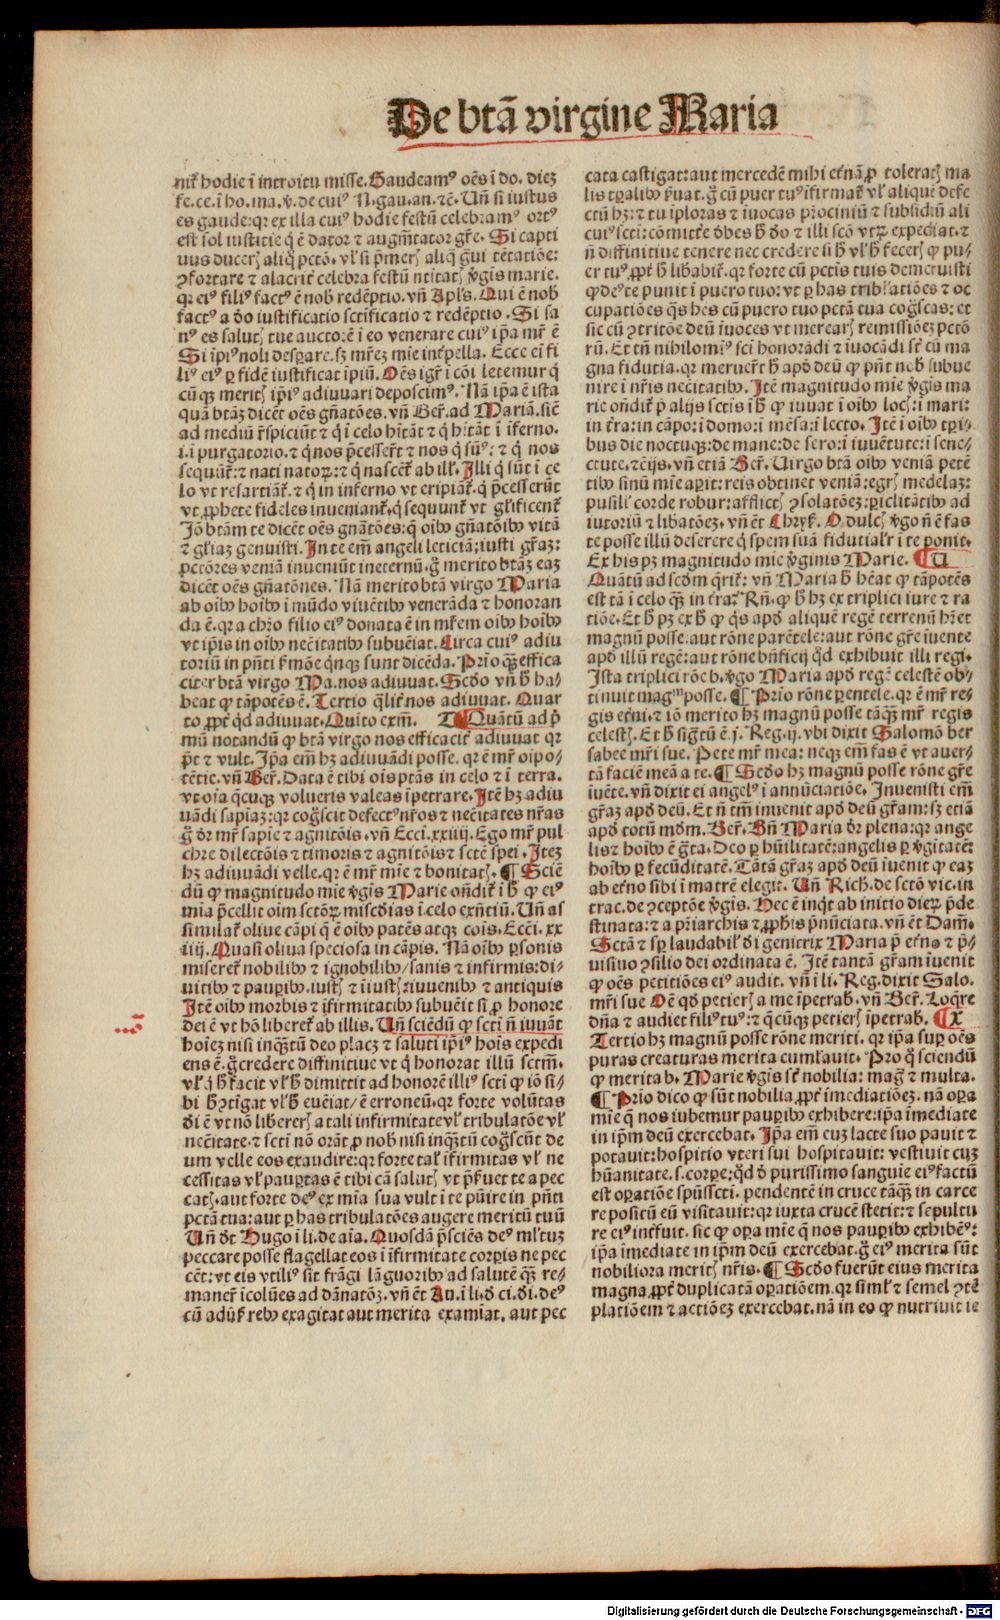 De btã virgine Maria
nit̃ hodie ĩ introitu misse. Gaudeamꝰ oẽs ĩ do. diez
fe. ce. ĩ ho. ma. v̾. de cuiꝰ N. gau. an. ⁊c̃. Uñ si iustus
es gaude: qꝛ ex illa cuiꝰ hodie festũ celebramꝰ ortꝰ
est sol iusticie q̇ ẽ dator ⁊ augm̃tator gr̃e. Si capti
uus ducerꝭ aliq̇ pctõ. vl̓ si p̃merꝭ aliq̇ g̃ui tẽtatiõe:
ꝯfortare ⁊ alacrit̃ celebra festũ ntitatꝭ v̾gis marie.
qꝛ eiꝰ filiꝰ factꝰ ẽ nob̓ redẽptio. vñ Apl̓s. Qui ẽ nob̓
factꝰ a ðo iustificatio sctificatio ⁊ redẽptio. Si sa
nꝰ es salutꝭ tue aucto: ẽ ĩ eo venerare cuiꝰ ip̃a mr̃ ẽ
Si ĩpiꝰ noli desꝑare. sꝫ mr̃ez mie int̃pella. Ecce eĩ fi
liꝰ eiꝰ ꝑ fidẽ iustificat ĩpiũ. Oẽs igr̃ ĩ cõi letemur q̇
cũ qꝫ meritꝭ ip̃iꝰ adiuuari deposcimꝰ. Nã ip̃a ẽ ista
quã btãz dicẽt oẽs gñatões. vñ Ber̃. ad Mariã. sic̃
ad mediũ r̃spiciũt ⁊ q̇ ĩ celo hĩtãt ⁊ q̇ hĩtãt ĩ ĩferno.
.i. ĩ purgatorio. ⁊ q̇ nos p̃cesser̃t ⁊ nos q̇ sũꝰ: ⁊ q̇ nos
sequũt̃: ⁊ nati natoꝝ: ⁊ q̇ nascẽt̃ ab ill̓. Illi q̇ sũt ĩ ce
lo vt resartiãt̃. ⁊ q̇ in inferno vt eripiãt̃. q̇ p̃cesserũt
vt ꝓphete fideles inueniant̃. q̇ sequunt̃ vt gl̓ificent̃
Jõ btãm te dicẽt oẽs gnãtões: q̇ oĩbꝰ gñatõibꝰ vitã
⁊ gl̓iaz genuisti. In te em̃ angeli leticiã: iusti gr̃az:
pctõres veniã inueniũt ineternũ. g̃ merito btãz eaz
dicẽt oẽs gñatões. Nã merito btã virgo Maria
ab oĩbꝰ hoĩbꝰ ĩ mũdo viuẽtibꝰ venerãda ⁊ honoran
da ẽ. qꝛ a chr̃o filio eiꝰ donata ẽ in mr̃em oĩbꝰ hoĩbꝰ
vt ip̃is in oĩbꝰ nec̃itatibꝰ subuẽiat. Circa cuiꝰ adiu
toriũ in pñti s̓mõe q̇nqꝫ sunt dicẽda. Prĩo qꝫ effica
citer btã virgo Ma. nos adiuuat. Scðo vñ h̓ ha
beat ꝙ tãpotẽs ẽ. Tertio q̃lit̃ nos adiuuat. Quar
to ꝓpt̃ qð adiuuat. Quito exm̃. T Quãtũ ad p̃
mũ notandũ ꝙ btã virgo nos efficacit̃ adiuuat qꝛ
p̃t ⁊ vult. Ip̃a em̃ hꝫ adiuuãdi posse. qꝛ ẽ mr̃ oĩpo-
tẽtie. vñ Ber̃. Data ẽ tibi oĩs ptãs in celo ⁊ ĩ terra.
vt oĩa q̃cũqꝫ volueris valeas ĩpetrare. Itẽ hꝫ adiu
uãdi sapiaz: qꝛ cog̃scit defectꝰ nr̃os ⁊ nec̃itates nr̃as
g̃ ðr mr̃ sapie ⁊ agnitõis. vñ Ecci. xxiiij. Ego mr̃ pul
chre dilectõis ⁊ timoris ⁊ agnitõis ⁊ sctẽ spei. Itez
hꝫ adiuuãdi velle. qꝛ ẽ mr̃ mie ⁊ bonitatꝭ. ¶ Sciẽ
dũ ꝙ magnitudo mie v̾gis Marie oñdit̃ ĩ h̓ ꝙ eiꝰ
mia p̃cellit oĩm sctõꝝ miscðias ĩ celo exñtiũ. Uñ as
similat̃ oliue cãpi q̃ ẽ oĩbꝰ patẽs atqꝫ cois. Ecci. xx
iiij. Quasi oliua speciosa in cãpis. Nã oĩbꝰ ꝑsonis
miseret̃ nobilibꝰ ⁊ ignobilibꝰ/ sanis ⁊ infirmis: di-
uitibꝰ ⁊ pauꝑibꝰ. iustꝭ ⁊ ĩiustꝭ: iuuenibꝰ ⁊ antiquis
Itẽ oĩbꝰ morbis ⁊ ĩfirmitatibꝰ subuẽit si ꝓ honore
dei ẽ vt hõ liberet̃ ab illis. Uñ sciẽdũ ꝙ scti ñ iuuãt
hoĩez nisi inqꝫtũ deo placꝫ ⁊ saluti ip̃iꝰ hoĩs expedi
ens ẽ. g̃ credere diffinitiue vt q̇ honorat illũ sctm̃.
vl̓ q̇ h̓ facit vl̓ h̓ dimittit ad honorẽ illiꝰ scti ꝙ iõ si/
bi h̓ ꝯtigat vl̓ h̓ euẽiat/ ẽ erroneũ. qꝛ forte volũtas
ði ẽ vt nõ libererꝭ a tali infirmitate vl̓ tribulatõe vl̓
nec̃itate. ⁊ scti nõ orãt ꝓ nob̓ nisi inqꝫtũ cog̃scũt de
um velle eos exaudire: qꝛ forte tal̓ ĩfirmitas vl̓ ne
cessitas vl̓ pauꝑtas ẽ tibi cã salutꝭ vt p̃s̓uet te a pec
catꝭ. aut forte deꝰ ex mia sua vult ĩ te pũire in pñti
pctã tua: aut ꝑ has tribulatões augere meritũ tuũ
Uñ ðt Hugo ĩ li. de aĩa. Quosdã p̃sciẽs deꝰ ml̓tuz
peccare posse flagellat eos ĩ ĩfirmitate corꝑis ne pec
cẽt: vt eis vtiliꝰ sit frãgi lãguoribꝰ ad salutẽ qꝫ re/
maner̃ ĩcolũes ad dãnatõz. vñ ẽt Au. ĩ li. ð ci. ði. deꝰ
cũ adũs̓ rebꝰ exagitat aut merita examĩat. aut pec
cata castigat: aut mercedẽ mihi et̃nã ꝓ toleratꝭ ma
lis tꝑalibꝰ s̓uat. g̃ cũ puer tuꝰ ĩfirmat̃ vl̓ aliquẽ defe
ctũ hꝫ: ⁊ tu ĩploras ⁊ ĩuocas p̃rociniũ ⁊ subsidiũ ali
cuiꝰ scti: cõmitt̃e ðbes h̓ ðo ⁊ illi sctõ vtꝝ expediat. ⁊
ñ diffinitiue tenere nec credere si h̓ vl̓ h̓ fecerꝭ ꝙ pu-
er tuꝰ ꝓpt̃ h̓ libabit̃. qꝛ forte cũ pctis tuis demeruisti
ꝙ deꝰ te punit ĩ puero tuo: vt ꝑ has tribl̓atiões ⁊ oc
cupatiões q̃s hẽs cũ puero tuo pctã tua cog̃scas: et
sic cũ ꝯtritõe deũ ĩuoces vt merearꝭ remissiõez pctõ
rũ. Et tñ nihilomiꝰ scĩ honorãdi ⁊ ĩuocãdi st̃ cũ ma
gna fiducia. qꝛ meruer̃t h̓ apð deũ ꝙ pñt nob̓ subue
nire ĩ nr̃is nec̃itatibꝰ. Itẽ magnitudo mie v̾gis ma
rie oñdit̃ p̃ alijs sctis ĩ h̓ ꝙ iuuat ĩ oĩbꝰ locꝭ: ĩ mari:
in t̃ra: in cãpo: ĩ domo: ĩ mẽsa: ĩ lecto. Itẽ ĩ oĩbꝰ tꝑi-
bus die noctuqꝫ: de mane: de sero: ĩ iuuẽtute: ĩ sene/
ctute. ⁊ c̃ijs. vñ etiã Ber̃. Uirgo btã oĩbꝰ veniã petẽ
tibꝰ sinũ mie aꝑit: reis obtinet veniã: egrꝭ medelaz:
pusill̓ corde robur: afflictꝭ ꝯsolatõez: ꝑiclitãtibꝰ ad
iutoriũ ⁊ libatõez. vñ ẽt Chrys̓. O dulcꝭ v̾go ñ ẽ fas
te posse illũ deserere q̇ spem suã fiducial̓r ĩ te ponit.
Ex his pꝫ magnitudo mie v̾ginis Marie. ¶ U
Quãtũ ad scðm q̃rit̃: vñ Maria h̓ hẽat ꝙ tãpotẽs
est tã ĩ celo qꝫ in t̃ra? Rñ. ꝙ h̓ hꝫ ex triplici iure ⁊ ra
tiõe. Et h̓ pꝫ ex h̓ ꝙ q̇s apð aliquẽ regẽ terrenũ hẽt
magnũ posse: aut rõne parẽtele: aut rõne gr̃e ĩuente
apð illũ regẽ: aut rõne bñficij qð exhibuit illi regi.
Ista triplici rõe b. v̾go Maria apð regẽ celestẽ ob/
tinuit magᵐ posse. ¶ Prĩo rõne ꝑentele. qꝛ ẽ mr̃ re/
gis et̃ni. ⁊ iõ merito hꝫ magnũ posse tãqꝫ mr̃ regis
celestꝭ. Et h̓ sig̃tũ ẽ. j. Reg. ij. vbi dixit Salomõ ber
sabee mr̃i sue. Pete mr̃ mea: neqꝫ em̃ fas ẽ vt auer/
tã faciẽ meã a te. ¶ Scðo hꝫ magnũ posse rõne gr̃e
ĩuẽte. vñ dixit ei angelꝰ ĩ annũciatiõe. Inuenisti em̃
gr̃az apð deũ. Et ñ tm̃ inuenit apð deũ gr̃am: sꝫ etiã
apð totũ mðm. Ber̃. Bñ Maria ðr plena: qꝛ ange
lis ⁊ hoĩbꝰ ẽ g̃ta. Deo ꝑ hũilitatẽ: angelis ꝑ v̾gitatẽ:
hoĩbꝰ ꝑ fecũditatẽ. Tãtã gr̃az apð deũ ĩuenit ꝙ eaz
ab et̃no sibi ĩ matrẽ elegit. Uñ Rich. de sctõ vic. in
trac. de ꝯceptõe v̾gis. Hec ẽ inqͥt ab initio dieꝝ p̃de
stinata: ⁊ a pr̃iarchis ⁊ ꝓphis p̃nũciata. vñ ẽt Dam̃.
Sctã ⁊ sꝑ laudabil̓ ði genitrix Maria p̃ et̃no ⁊ p̃/
uisiuo ꝯsilio dei ordinata ẽ. Itẽ tantã gr̃am ĩuenit
ꝙ oẽs petitões eiꝰ audit. vñ ĩ li. Reg. dixit Salo.
mr̃i sue Oẽ qð petierꝭ a me ĩpetrab̓. vñ Ber̃. Loq̃re
dñã ⁊ audiet filiꝰ tuꝰ: ⁊ q̃cũqꝫ petierꝭ ĩpetrab̓. ¶ X
Tertio hꝫ magnũ posse rõne meriti. qꝛ ip̃a suꝑ oẽs
puras creaturas merita cuml̓auit. Pro q̇ sciendũ
ꝙ merita b. Marie v̾gis st̃ nobilia: mag̃ ⁊ multa.
¶ Prĩo dico ꝙ sũt nobilia ꝓpt̃ ĩmediatiõez. nã oꝑa
mie q̃ nos iubemur pauꝑibꝰ exhibere: ip̃a ĩmediate
in ip̃m deũ exercebat. Ip̃a em̃ cuꝫ lacte suo pauit ⁊
potauit: hospitio vteri sui hospitauit: vestiuit cuꝫ
hũanitate. s. corꝑe: qð ð purissimo sanguie eiꝰ factũ
est oꝑatiõe spũssctĩ. pendentẽ in cruce tãqꝫ in carce
re positũ eũ visitauit: qꝛ iuxta crucẽ stetit: ⁊ sepultu
re eiꝰ int̃fuit. sic ꝙ oꝑa mie q̃ nos pauꝑibꝰ exhibẽꝰ:
ip̃a ĩmediate in ip̃m deũ exercebat. g̃ eiꝰ merita sũt
nobiliora meritꝭ nr̃is. ¶ Scðo fuerũt eius merita
magna ꝓpt̃ duplicatã oꝑatiõem. qꝛ siml̓ ⁊ semel ꝯtẽ
platiõem ⁊ actiõez exercebat. nã in eo ꝙ nutriuit ie
Digitalisierung gefördert durch die Deutsche Forschungsgemeinschaft - DFG